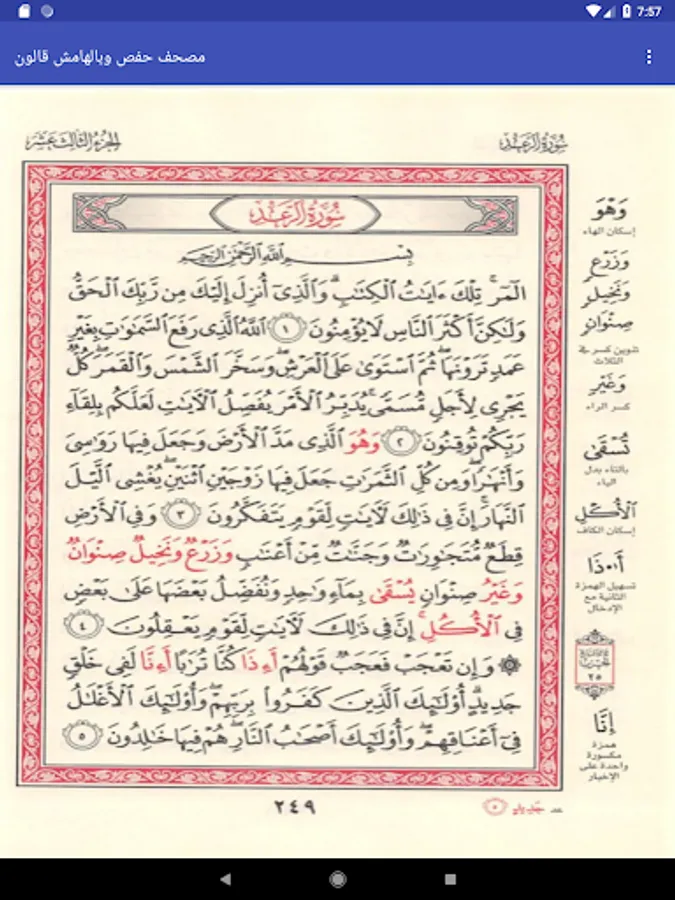 7:57
مصحف حفص وبالهامش قالون
سُورَةُ الرَّعْدِ
الجُزْءُ الثَّالِثَ عَشَرَ
سُورَةُ الرَّعْدِ
بِسْمِ اللَّهِ الرَّحْمَٰنِ الرَّحِيمِ
الٓمٓر ۚ تِلْكَ ءَايَٰتُ ٱلْكِتَٰبِ ۗ وَٱلَّذِىٓ أُنزِلَ إِلَيْكَ مِن رَّبِّكَ ٱلْحَقُّ
وَلَٰكِنَّ أَكْثَرَ ٱلنَّاسِ لَا يُؤْمِنُونَ ١ ٱللَّهُ ٱلَّذِى رَفَعَ ٱلسَّمَٰوَٰتِ بِغَيْرِ
عَمَدٍ تَرَوْنَهَا ۖ ثُمَّ ٱسْتَوَىٰ عَلَى ٱلْعَرْشِ ۖ وَسَخَّرَ ٱلشَّمْسَ وَٱلْقَمَرَ ۖ كُلٌّ
يَجْرِى لِأَجَلٍ مُّسَمًّى ۚ يُدَبِّرُ ٱلْأَمْرَ يُفَصِّلُ ٱلْءَايَٰتِ لَعَلَّكُم بِلِقَآءِ
رَبِّكُمْ تُوقِنُونَ ٢ وَهُوَ ٱلَّذِى مَدَّ ٱلْأَرْضَ وَجَعَلَ فِيهَا رَوَٰسِىَ
وَأَنْهَٰرًا ۖ وَمِن كُلِّ ٱلثَّمَرَٰتِ جَعَلَ فِيهَا زَوْجَيْنِ ٱثْنَيْنِ ۖ يُغْشِى ٱلَّيْلَ
ٱلنَّهَارَ ۚ إِنَّ فِى ذَٰلِكَ لَءَايَٰتٍ لِّقَوْمٍ يَتَفَكَّرُونَ ٣ وَفِى ٱلْأَرْضِ
قِطَعٌ مُّتَجَٰوِرَٰتٌ وَجَنَّٰتٌ مِّنْ أَعْنَٰبٍ وَزَرْعٌ وَنَخِيلٌ صِنْوَانٌ
وَغَيْرُ صِنْوَانٍ يُسْقَىٰ بِمَآءٍ وَٰحِدٍ وَنُفَضِّلُ بَعْضَهَا عَلَىٰ بَعْضٍ
فِى ٱلْأُكُلِ ۚ إِنَّ فِى ذَٰلِكَ لَءَايَٰتٍ لِّقَوْمٍ يَعْقِلُونَ ٤
۞ وَإِن تَعْجَبْ فَعَجَبٌ قَوْلُهُمْ أَءِذَا كُنَّا تُرَٰبًا أَءِنَّا لَفِى خَلْقٍ
جَدِيدٍ ۗ أُو۟لَٰٓئِكَ ٱلَّذِينَ كَفَرُوا۟ بِرَبِّهِمْ ۖ وَأُو۟لَٰٓئِكَ ٱلْأَغْلَٰلُ
فِىٓ أَعْنَاقِهِمْ ۖ وَأُو۟لَٰٓئِكَ أَصْحَٰبُ ٱلنَّارِ ۖ هُمْ فِيهَا خَٰلِدُونَ ٥
وَهْوَ
إسكان الهاء
وَزَرْعٍ
وَنَخِيلٍ
صِنْوَانٍ
تنوين كسر في
الثلاث
وَغَيْرِ
كسر الراء
تُسْقَىٰ
بالتاء بدل
الياء
ٱلْأُكْلِ
إسكان الكاف
أَ۟ذَا
تسهيل الهمزة
الثانية مع
الإدخال
٢٥
إِنَّا
همزة
مكسورة
واحدة على
الإخبار
عد جَدِيدٍ ٥
٢٤٩